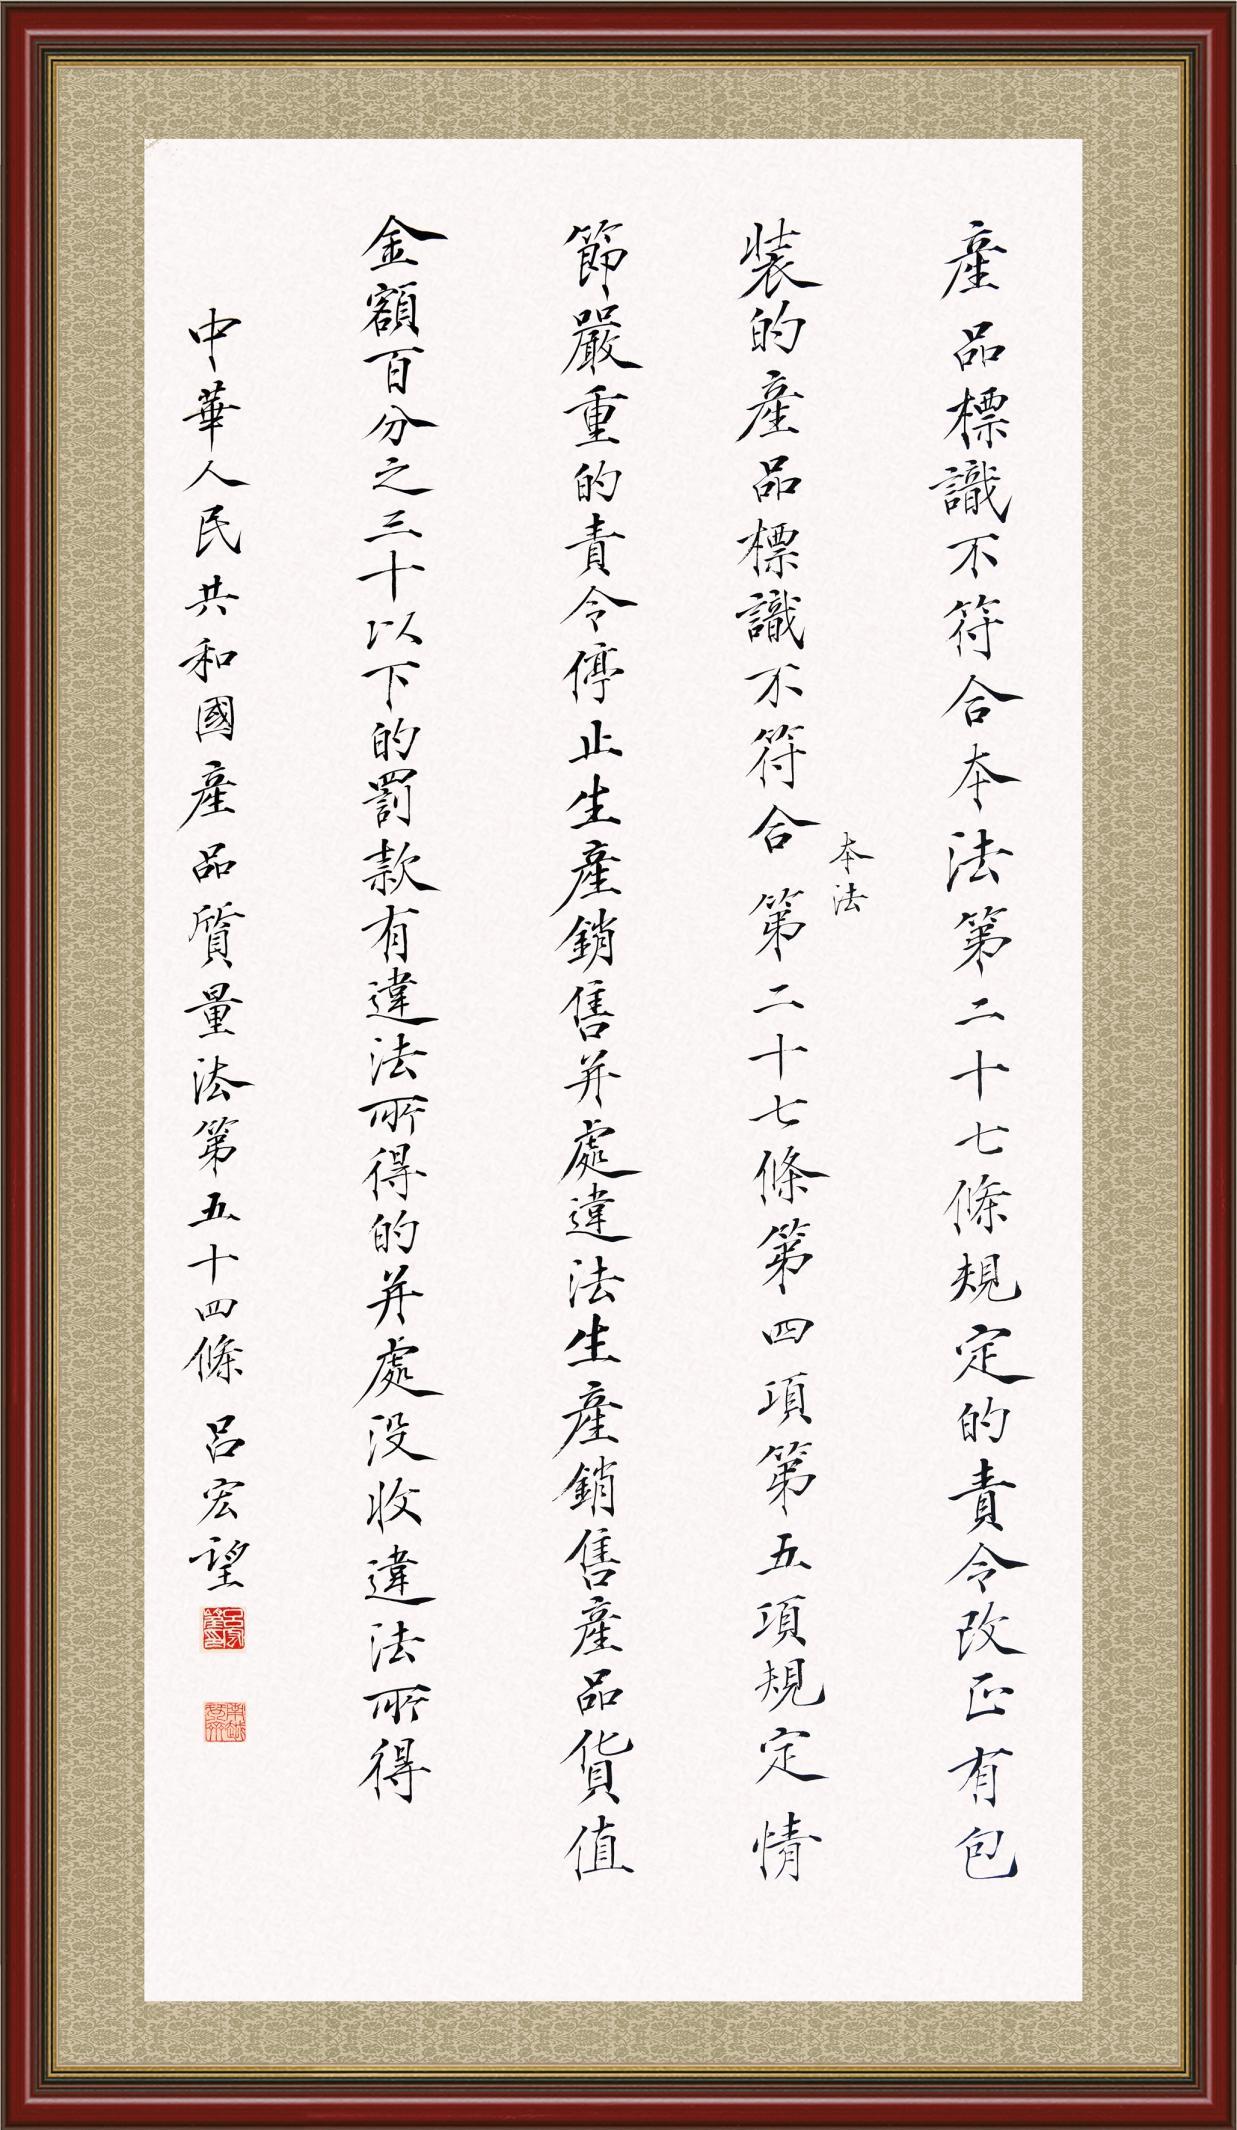 產品標識不符合本法第二十七條規定的責令改正有包
裝的產品標識不符合第二十七條第四項第五項規定情
本法
節嚴重的責令停止生產銷售并處違法生產銷售產品貨值
金額百分之三十以下的罰款有違法所得的并處没收違法所得
中華人民共和國產品質量法第五十四條 呂宏望